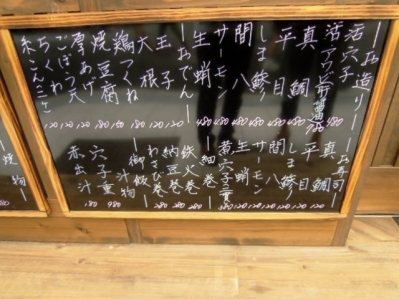 お造り
活穴子
活アワビ
真鯛 480
平目 480
しま鯵 480
間八 480
サーモン 480
生蛸 480
おでん
玉子 120
大根 120
鶏つくね 180
焼豆腐
厚あげ
ごぼう天 120
ちくわ 120
赤こんにゃく 120
お寿司
真鯛 120
平目 120
しま鯵
間八
サーモン 120
生蛸 120
煮穴子一貫 280
細巻
鉄火巻 280
納豆巻 280
わさび巻 280
御飯
汁物
穴子重 980
赤出汁 180
焼物